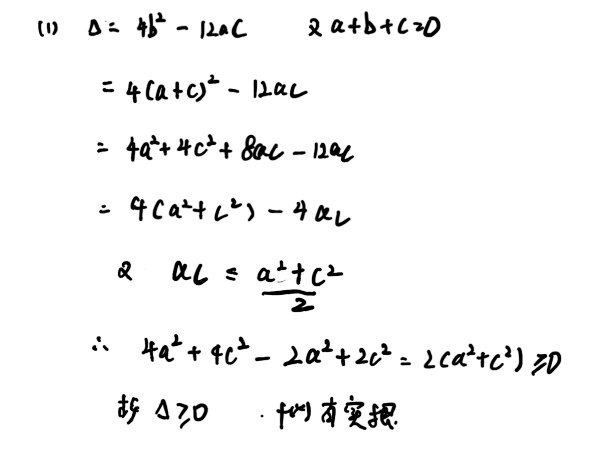 (1) Δ = 4b² - 12ac 又 a+b+c=0
= 4(a+c)² - 12ac
= 4a²+4c²+8ac-12ac
= 4(a²+c²) - 4ac
又 ac ≤ (a²+c²)/2
∴ 4a²+4c²-2a²+2c² = 2(a²+c²) ≥0
故 Δ≥0 . f(x)有实根.